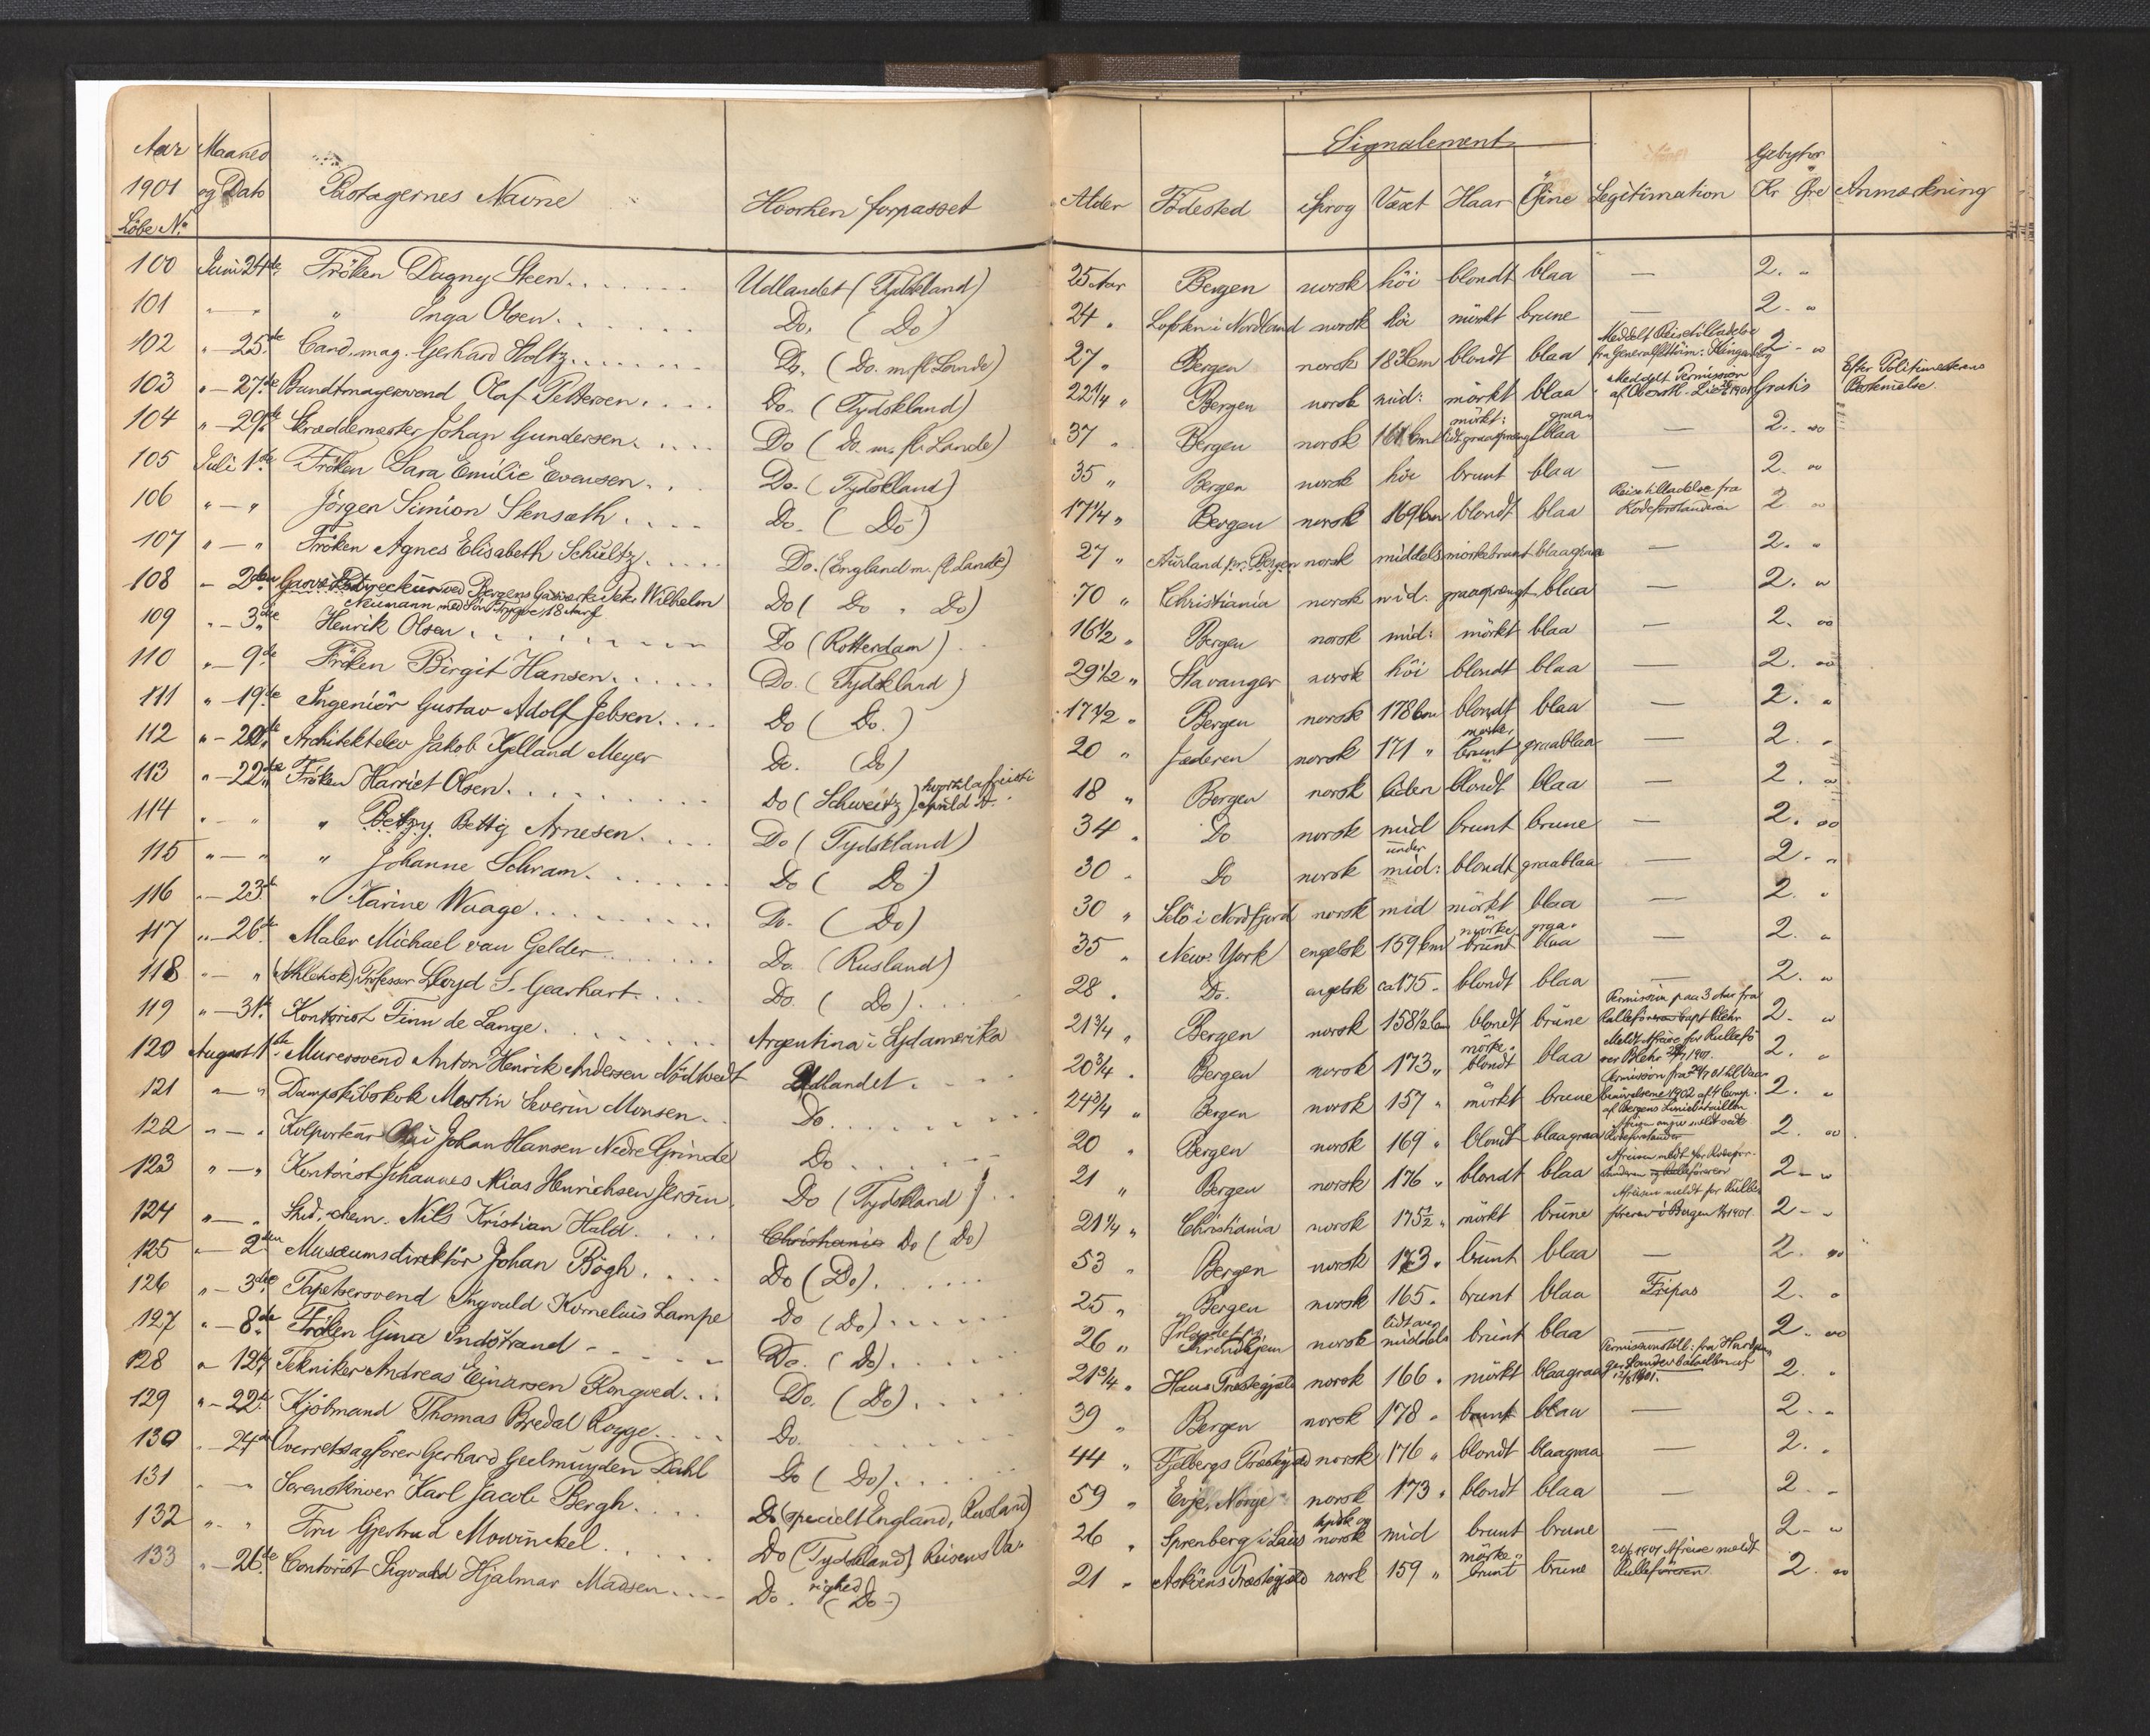 Aar Maaned
1901 og Dato Pastagernes Navne Hvorhen forpasset
Löbe No.
100 Juni 24de Fröken Dagny Steen Udlandet (Tydskland)
101 " — " " Inga Olsen Do. (Do)
102 " — 25de Cand. mag. Gerhard Holtz Do. (Do. m fl Lande)
103 " — 27de Bundtmagersvend Olaf Pettersen Do. (Tydskland)
104 " — 29de Skræddermester Johan Gundersen Do (Do. m. fl. Lande)
105 Juli 1ste Fröken Sara Emilie Evensen Do. (Tydskland)
106 " — " Jörgen Simion Stensæth Do. (Do)
107 " — " Fröken Agnes Elisabeth Schultz Do. (England m. fl. Lande)
108 " — 2den ved Bergens Gasværk Wilhelm Do (Do " Do)
Neumann med Sön 18 Aar
109 " — 3die Henrik Olsen Do (Rotterdam)
110 " — 9de Fröken Birgit Hansen Do. (Tydskland)
111 " — 19de Ingeniör Gustav Adolf Jebsen Do (Do.)
112 " — 20de Arkitektelev Jakob Kjelland Meyer Do. (Do)
113 " — 22de Fröken Harriet Olsen Do (Schweitz)
114 " — " " Betzy Bettig Arnesen Do (Tydskland)
115 " — " " Johanne Schram Do (Do)
116 " — 23de " Karine Waage Do. (Do)
117 " — 26de Maler Michael van Gelder Do. (Rusland)
118 " — " (Athletisk) Professor Lloyd S. Gearhart Do. (Do)
119 " — 31te Kontorist Finn de Lange Argentina i Sydamerika
120 August 1ste Murersvend Anton Henrik Andersen Nödtvedt Udlandet
121 " — " Dampskibskok Martin Severin Monsen Do
122 " — " Kolportør Johan Hansen Nedre Grinde Do
123 " — " Kontorist Johannes Mias Henrichsen Jersin Do (Tydskland)
124 " — " Stud. chem. Nils Kristian Hald Christiania Do (Do)
125 " — 2den Museumsdirektör Johan Bögh Do (Do)
126 " — 3die Tapetsersvend Ingvald Kornelius Lampe Do (Do)
127 " — 8de Fröken Gina Indstrand Do. (Do)
128 " — 12te Tekniker Andreas Einarsen Rongved Do. (Do)
129 " — 22de Kjöbmand Thomas Bredal Rogge Do.
130 " — 24de Overretssagförer Gerhard Geelmuyden Dahl Do (Do)
131 " — " Sorenskriver Karl Jacob Bergh Do (specielt England, Rusland)
132 " — " Fru Gjertrud Mowinckel Do (Tydskland) Reisens Va-
righed
133 " — 26de Contorist Sigvald Hjalmar Madsen Do. (Do)
Signalement Gebyhr
Alder Födested Sprog Væxt Haar Öine Legitimation Kr Öre Anmærkning
25 Aar Bergen norsk höi blondt blaa — 2. "
24 " Lofoten i Nordland norsk höi mörkt brune — 2. "
Meddelt Reisetilladelse
27 " Bergen norsk 183 Cm blondt blaa 2 - "
22 1/4 " Bergen norsk mid: mörkt blaa Meddelt Permission Gratis Efter Politimesterens
Bestemmelse
mörkt: graa-
37 " Bergen norsk 161 Cm lidt graasprængt blaa — 2. "
35 " Bergen norsk höi brunt blaa — 2. "
Reisetilladelse fra
17 1/4 " Bergen norsk 169 Cm blondt blaa Rodeforstanderen 2 "
27 " Aurland pr. Bergen norsk middels mörkebrunt blaagraa — 2. "
70 " Christiania norsk mid. graasprængt blaa — 2. "
16 1/2 " Bergen norsk mid: mörkt blaa — 2. "
29 1/2 " Stavanger norsk höi blondt blaa — 2. "
17 1/2 " Bergen norsk 178 Cm blondt blaa — 2. "
mörke-
20 " Jæderen norsk 171 " brunt graablaa — 2. "
18 " Bergen norsk liden blondt blaa — 2. "
34 " Do norsk mid brunt brune — 2. "
under
30 " Do norsk mid: blondt graablaa — 2. "
30 " Selö i Nordfjord norsk mid mörkt blaa — 2. "
mörke graa-
35 " New-York engelsk 159 Cm brunt blaa — 2. "
28 " Do. engelsk ca 175 " blondt blaa — 2. "
Permission paa 3 Aar fra
21 3/4 " Bergen norsk 158 1/2 Cm blondt brune Rulleföreren Capt Blehr 2. "
mörke-
20 3/4 " Bergen norsk 173 " blondt blaa Meldt Afreise for Rulleförer Blehr 1901. 2. "
24 3/4 " Bergen norsk 157 " mörkt brune 2. "
af Bergens Liniebataillon
20 " Bergen norsk 169 " blondt blaagraa Rodeforstander 2. "
21 " Bergen norsk 176 " blondt blaa Afreisen meldt for Rodeforstanderen og Rulleföreren 2 - "
Afreisen meldt for Rulle-
21 1/4 " Christiania norsk 175 1/2 " mörkt brune föreren i Bergen 1901. 2 - "
53 " Bergen norsk 173 " brunt blaa — 2. "
25 " Bergen norsk 165 " brunt blaa Fripas 2. "
lidt over
26 " Trondhjem norsk middels brunt blaa — 2. "
21 3/4 " Haus Præstegjæld norsk 166 " mörkt blaagraa 1901. 2. "
39 " Bergen norsk 178 " brunt blaa — 2. "
44 " Fjelbergs Præstegjæld norsk 176 " blondt blaagraa — 2. "
59 " Evje, Norge norsk 173 " blondt blaa — 2. "
tydsk og
26 " Sprenberg i Laus norsk mid brunt brune — 2 - "
mörke- 1901 Afreise meldt
21 " Asköens Præstegjæld norsk 159 " brunt brune Rulleföreren 2. "